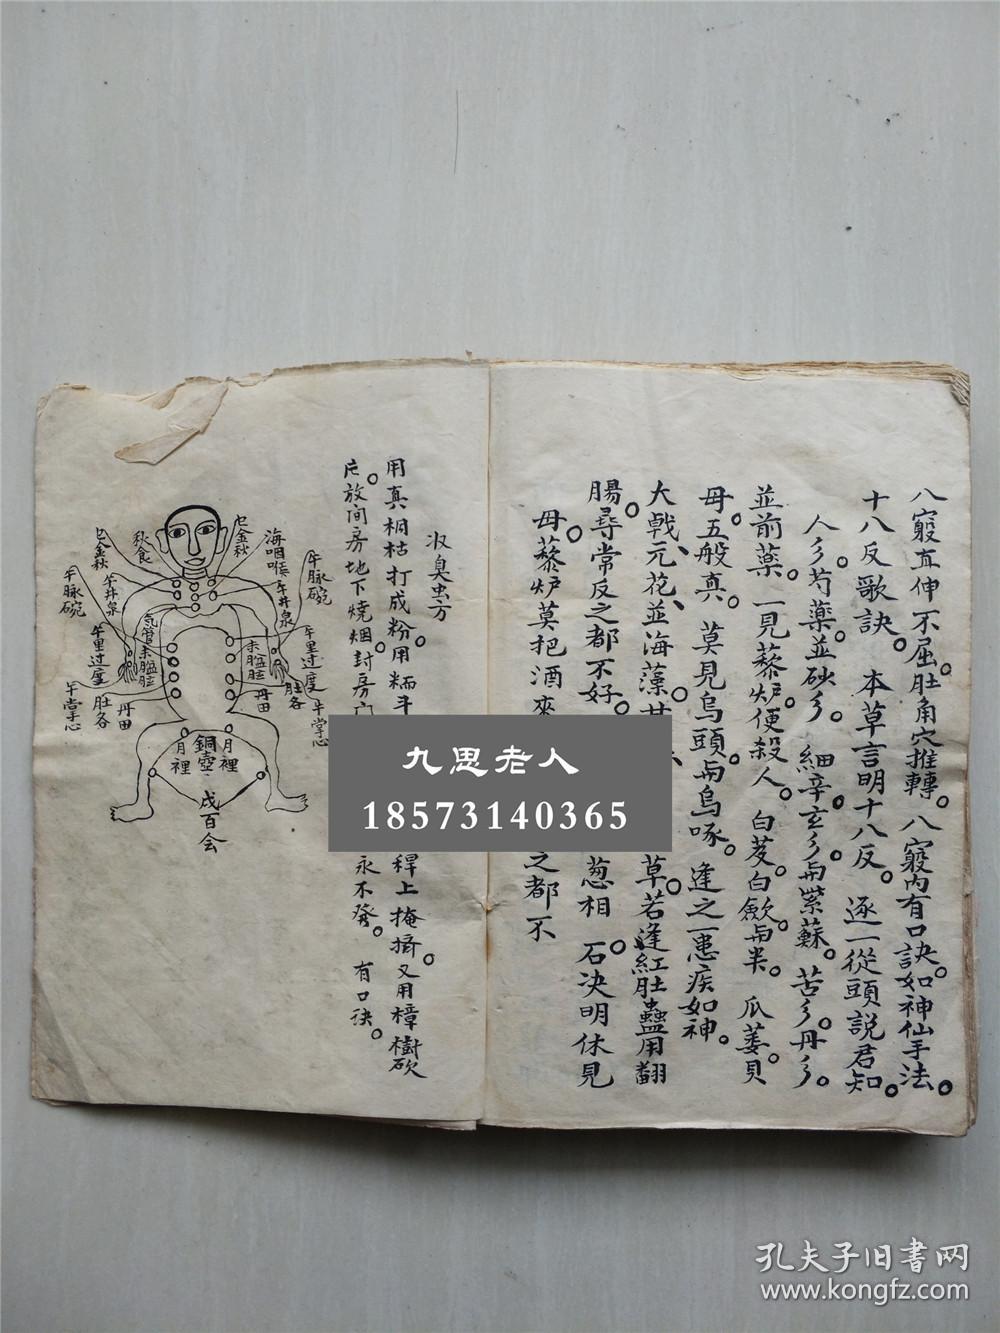 八竅直伸不屈。肚角穴推轉。八竅內有口訣。如神仙手法。
十八反歌訣。 本草言明十八反。逐一從頭説君知。
人彡芍藥。並砂彡 細辛玄彡。与紫蘇。苦彡。丹彡。
並前藥。一見藜炉。便殺人。白芨。白歛与半。瓜蒌。貝
母。五般真。莫見烏頭。与烏啄。逢之一患疾如神。
大戟、元花、並海藻。甘
草。若逢紅肚蠱用翻
腸。尋常反之都不好。
葱相。石決明休見
母。藜炉莫把酒來
之都不
收臭虫方
用真桐枯打成粉。用糯斗
稈上掩擠。又用樟樹砍
片。放间房地下燒烟。封房门
永不發。 有口诀。
巳金秋
秋食
巳金秋
海咽喉
午脉碗
午井泉
午井泉
午脉碗
气管
未臨肚
未臨肚
午里过度
午里过度
午掌心
肚各
丹田
丹田
肚各
午掌心
月裡
銅壺
月裡
戌百会
九思老人
18573140365
孔夫子旧書网
www.kongfz.com